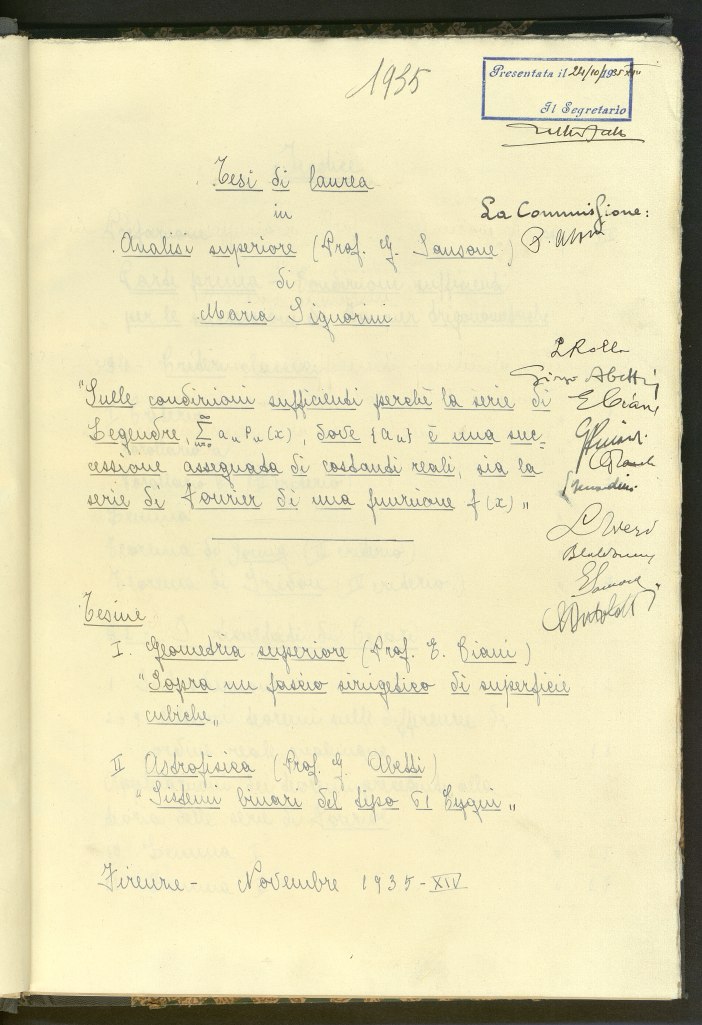 1935
Presentata il 24/10/1935 XIII
Il Segretario
Tesi di laurea
in
La Commissione:
Analisi superiore (Prof. G. Sansone)
di
Maria Signorini
Giorgio Abetti
"Sulle condizioni sufficienti perchè la serie di
E Ciani
Legendre, ∑ aₙ Pₙ(x), dove {aₙ} è una suc-
cessione assegnata di costanti reali, sia la
serie di Fourier di una funzione f(x)"
Tesine
I. Geometria superiore (Prof. E. Ciani)
"Sopra un fascio sirigetico di superficie
cubiche"
II Astrofisica (Prof. G. Abetti)
"Sistemi binari del tipo 61 Cygni"
Firenze - Novembre 1935 - XIV